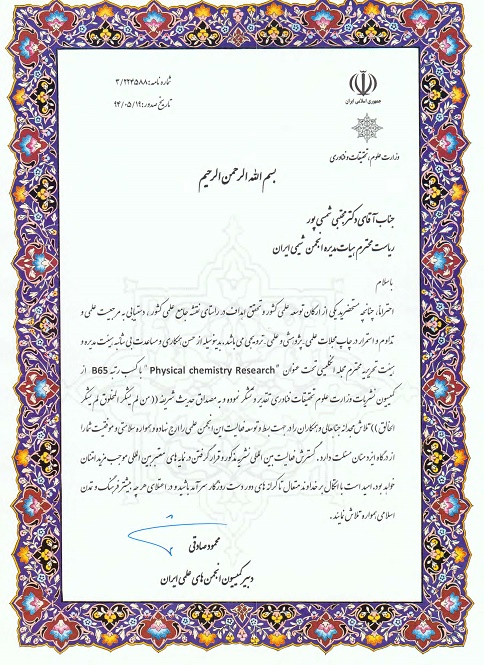 شماره نامه: ۳/۲۲۴۵۸۸
تاریخ صدور: ۹۴/۰۵/۱۹
جمهوری اسلامی ایران
وزارت علوم، تحقیقات و فناوری
بسم الله الرحمن الرحیم
جناب آقای دکتر مجتبی شمسی پور
ریاست محترم هیات مدیره انجمن شیمی ایران
با سلام
احتراماً، چنانچه مستحضرید یکی از ارکان توسعه علمی کشور و تحقق اهداف در راستای نقشه جامع علمی کشور، دستیابی به مرجعیت علمی و
تداوم و استمرار در چاپ مجلات علمی پژوهشی و علمی ـ ترویجی می باشد. بدینوسیله از حسن همکاری و مساعدت بی شائبه هیئت مدیره و
هیئت تحریریه محترم مجله انگلیسی تحت عنوان "Physical chemistry Research" با کسب رتبه B65 از
کمیسیون نشریات وزارت علوم تحقیقات فناوری تقدیر و تشکر نموده و به مصداق حدیث شریفه ((من لم یشکر المخلوق لم یشکر
الخالق)) تلاش مجدانه جنابعالی و همکاران را در جهت بسط و توسعه فعالیت این انجمن علمی را ارج نهاده و همواره سلامتی و موفقیت شما را
از درگاه ایزد منان مسئلت دارد. گسترش فعالیت بین المللی نشریه مذکور و قرار گرفتن در نمایه های معتبر بین المللی موجب مزید امتنان
خواهد بود. امید است با اتکال بر خداوند متعال تا کرانه های دور دست روزگار سرآمد باشید و در اعتلای هر چه بیشتر فرهنگ و تمدن
اسلامی همواره تلاش نمایند.
محمود صادقی
دبیر کمیسیون انجمن های علمی ایران